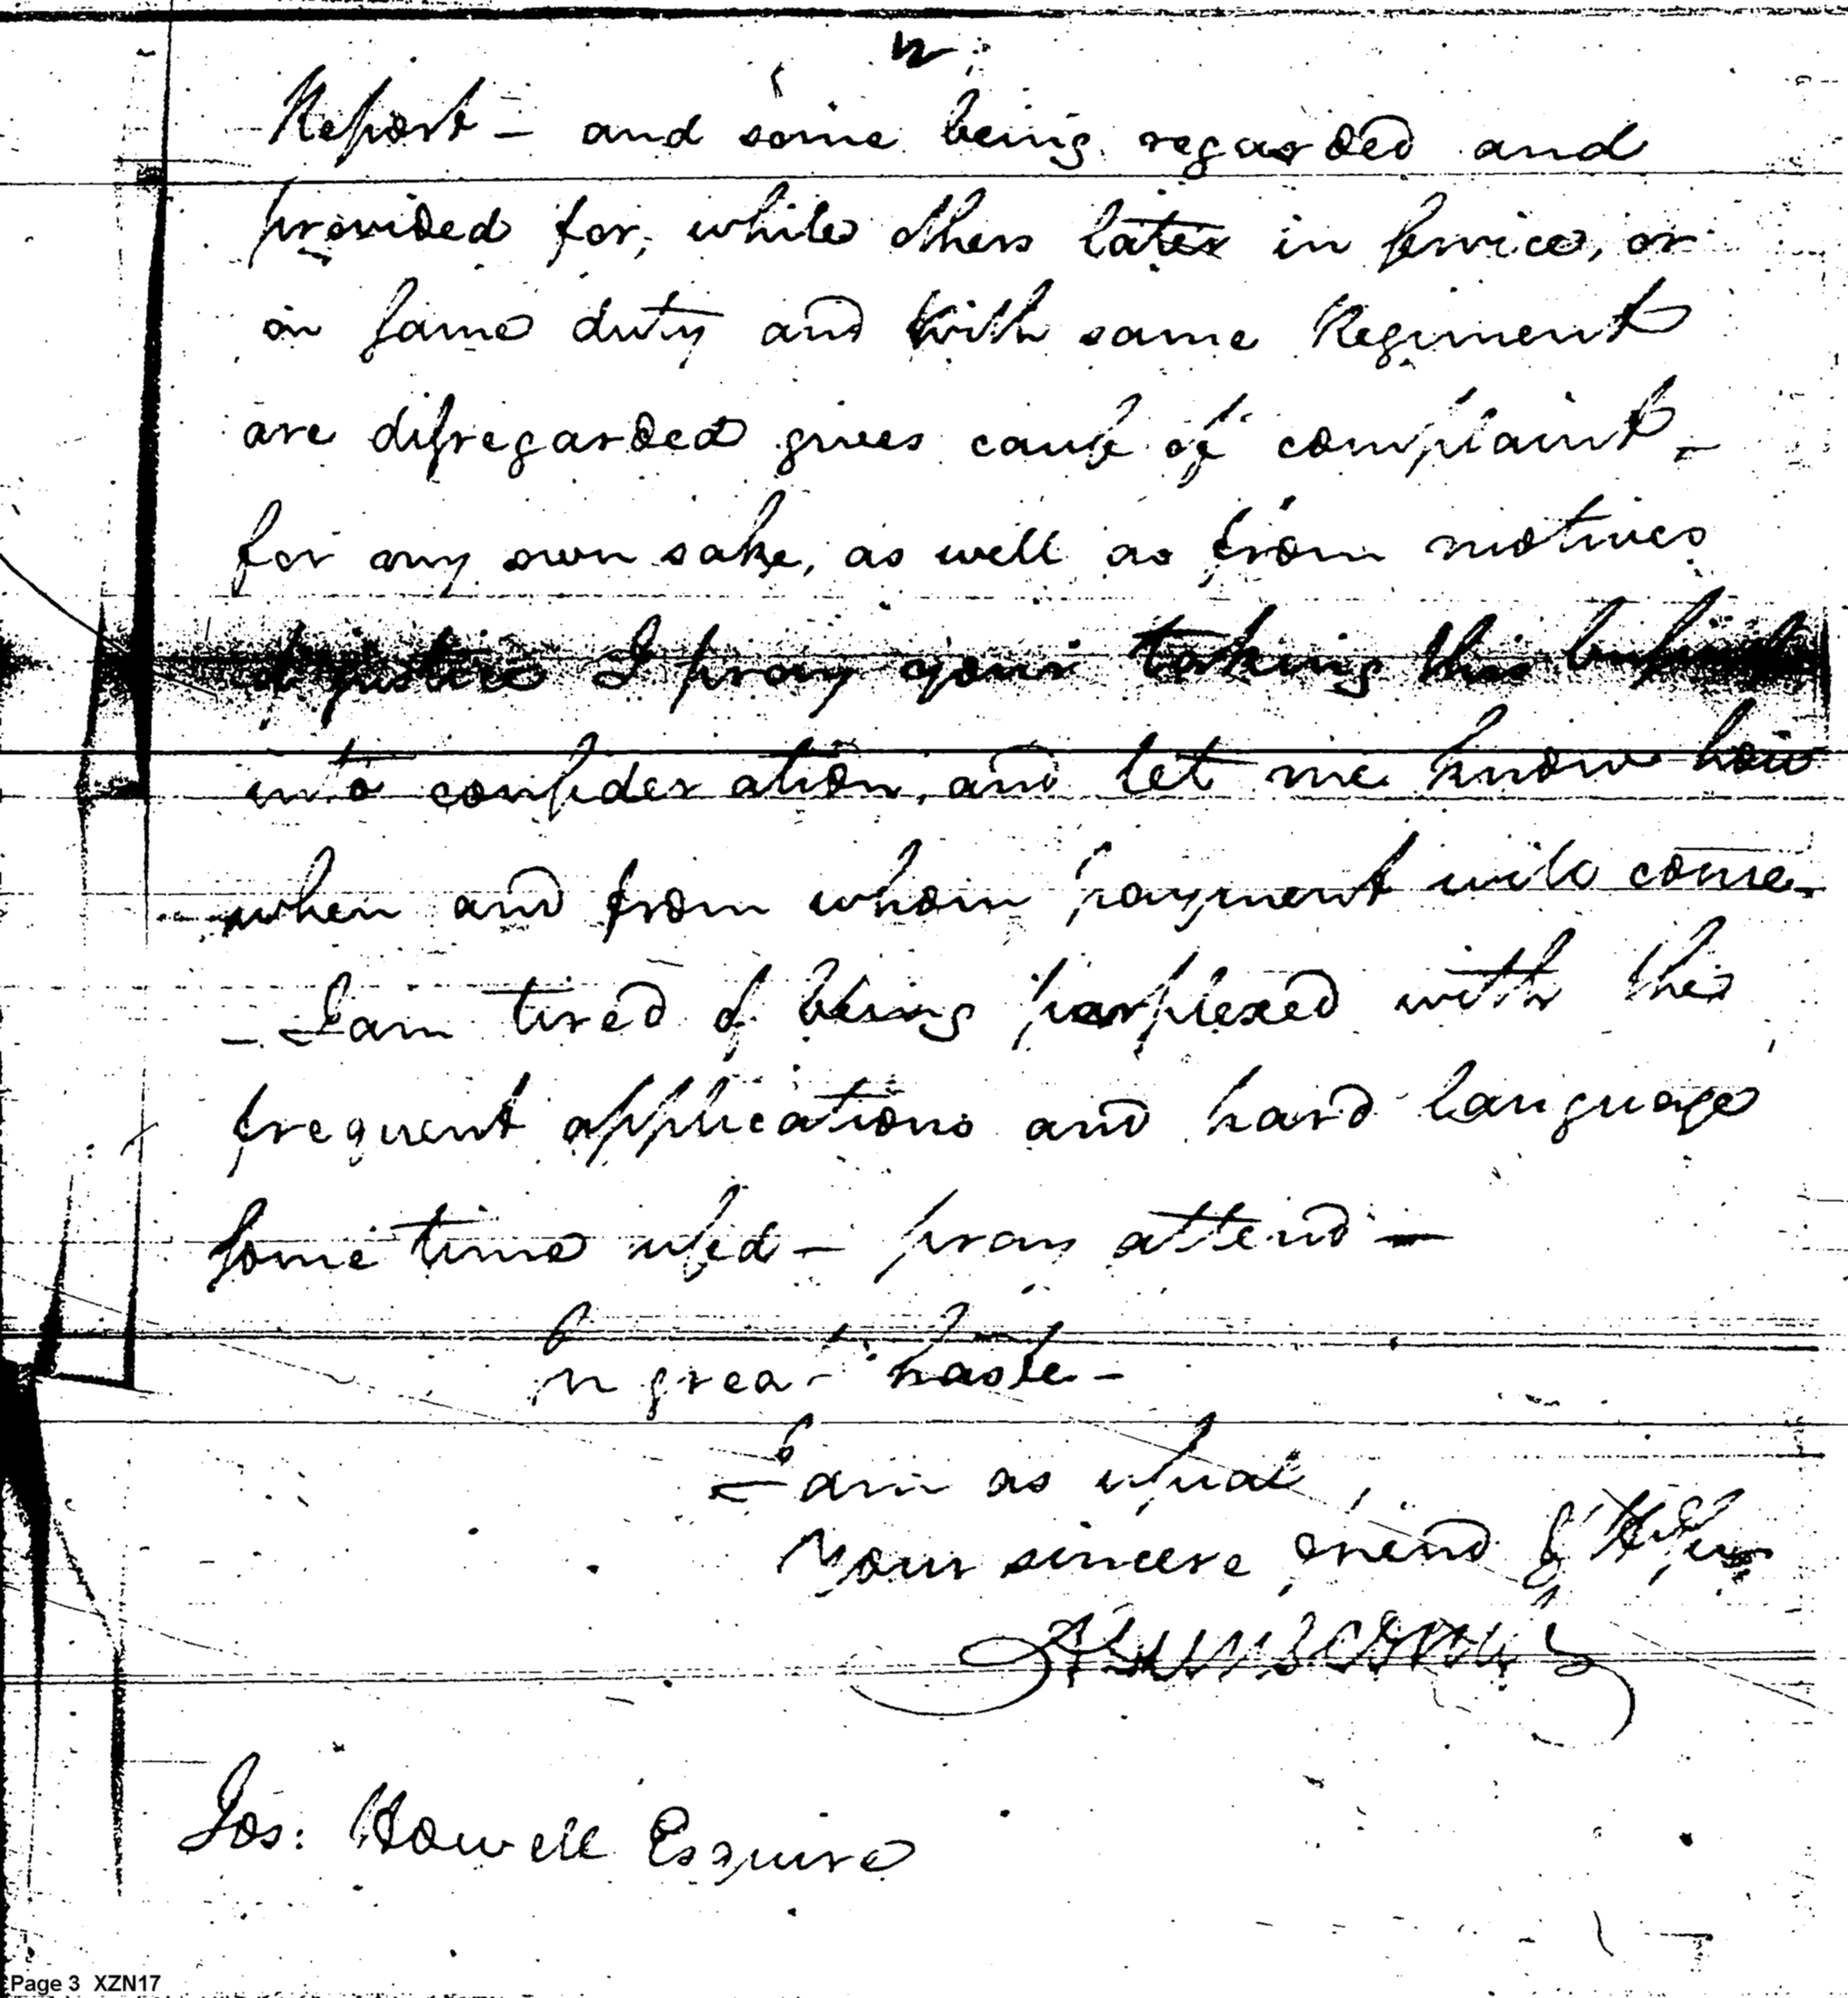 Report - and some being regarded and
provided for, while others later in service, or
on same duty and with same Regiment
are disregarded gives cause of complaint -
for my own sake, as well as from motives
of justice I pray your taking this
into consideration, and let me know how
when and from whom payment will come -
- I am tired of being perplexed with the
frequent applications and hard language
some time used - pray attend -
In great haste -
I am as usual,
Your sincere friend &
Jos: Howell Esquire
Page 3 XZN17